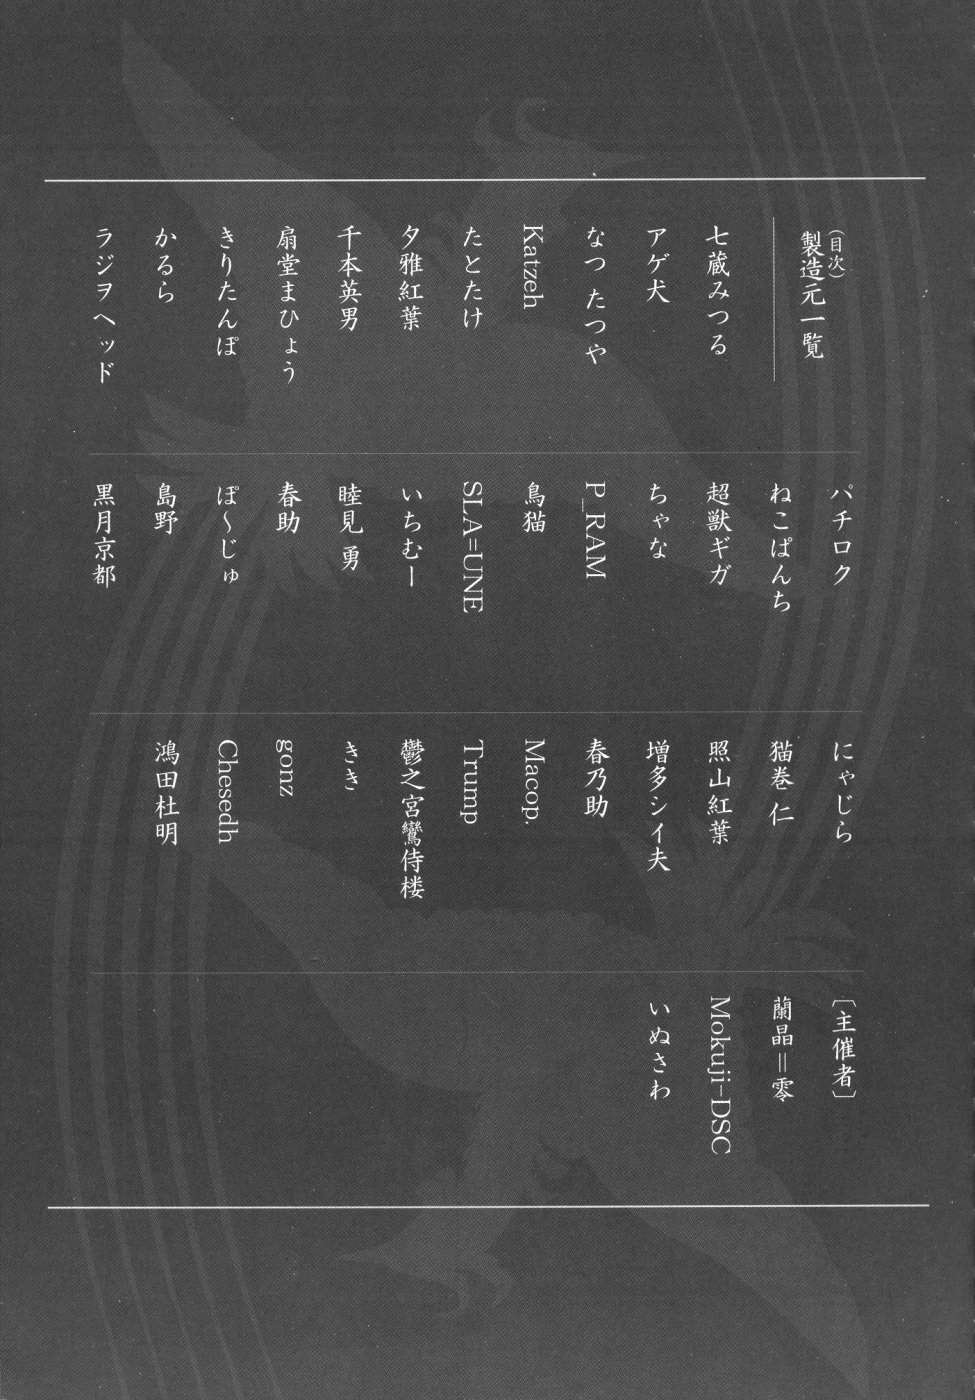 (目次)
製造元一覧
七蔵みつる
アゲ犬
なつ たつや
Katzeh
たとたけ
夕雅紅葉
千本英男
扇堂まひょう
きりたんぽ
かるら
ラジヲヘッド
パチロク
ねこぱんち
超獣ギガ
ちゃな
P_RAM
鳥猫
SLA=UNE
いちむー
睦見 勇
春助
ぽ～じゅ
島野
黒月京都
にゃじら
猫巻 仁
照山紅葉
増多シイ夫
春乃助
Macop.
Trump
鬱之宮鸞侍楼
きき
gonz
Chesedh
鴻田杜明
[主催者]
蘭晶=零
Mokuji-DSC
いぬさわ